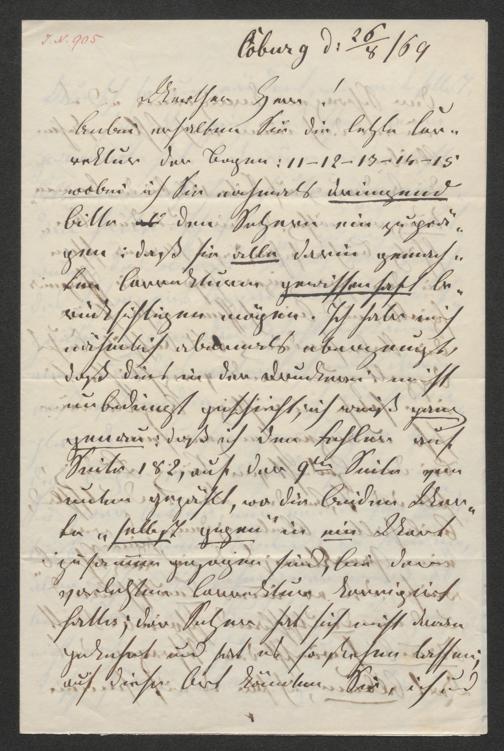 I. N. 905
Coburg d: 26/8/69
Werther Herr!
Anbei erhalten Sie die letzte Cor-
rektur der Bogen: 11-12-13-14-15
wobei ich Sie nochmals dringend
bitte den Setzern ein zu prä-
gen: daß sie alle darin gemach-
ten Correkturen gewissenhaft be-
rücksichtigen mögen. Ich habe mich
nähmlich abermals überzeugt
daß dies in der Druckerei nicht
unbedingt geschieht, ich weiß ganz
genau: daß ich den Fehler auf
Seite 182, auf der 9ten Zeile von
unten gezählt, wo die beiden Wor-
te „selbst gegen" in ein Wort
zusammen gezogen sind, bei der
vorletzten Correktur korrigirt
hatte; der Setzer hat sich nicht daran
gekehrt und hat es so stehen lassen;
auf diese Art könnten Sie, ich und